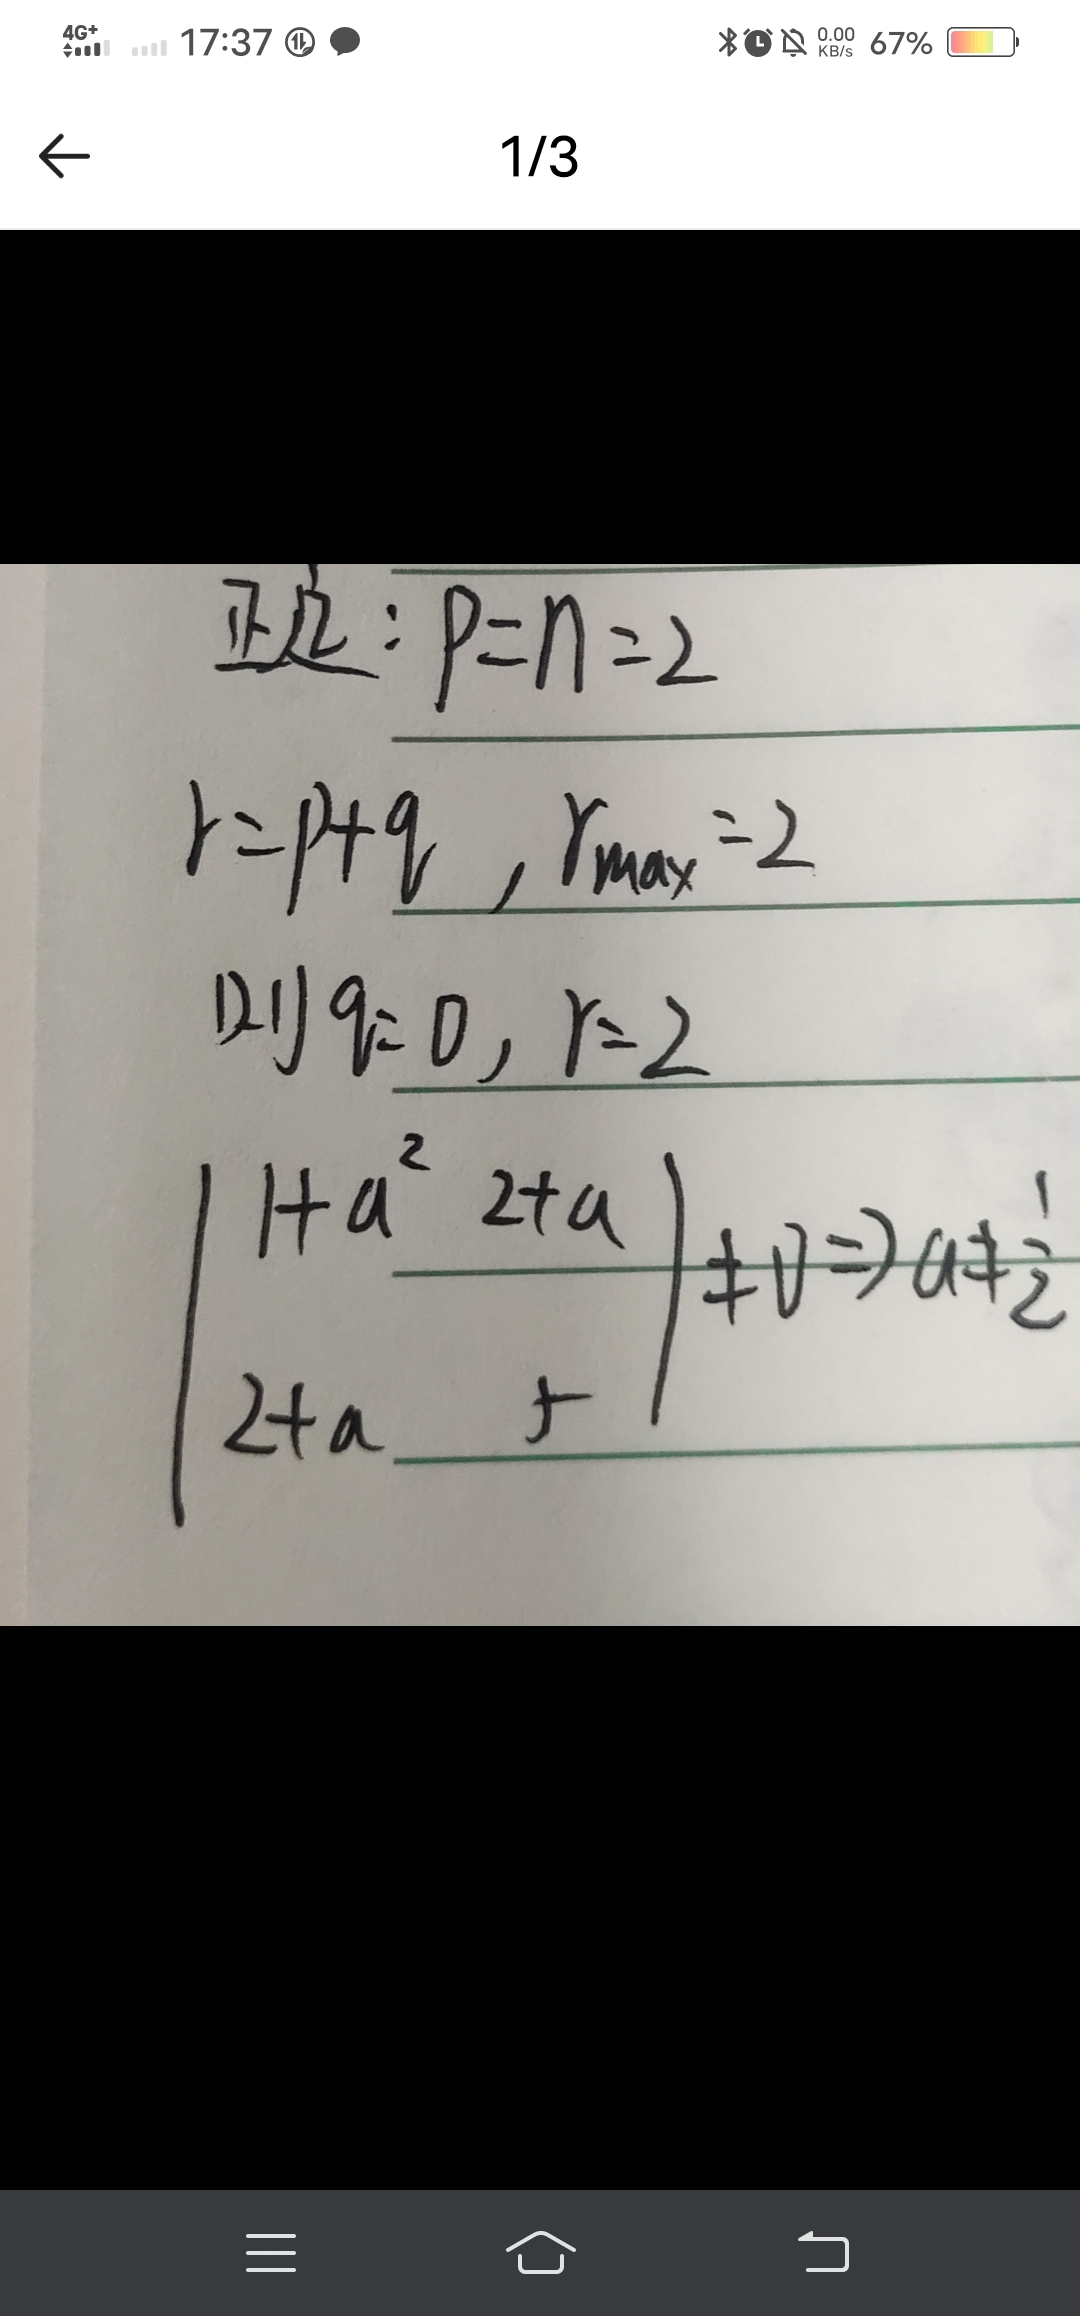 4G+ 17:37 0.00 KB/s 67%
1/3
正定：p=n=2
r=p+q，rmax=2
则q=0，r=2
| 1+a² 2+a | ≠0⇒a≠1/2
| 2+a 5 |